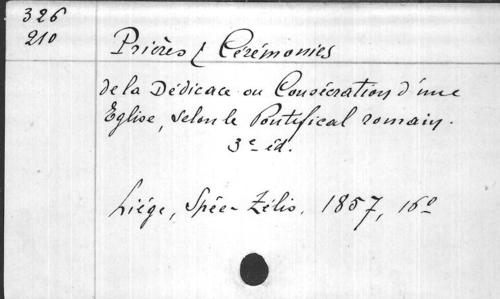 326
210
Prières & Cérémonies
de la Dédicace ou Consécration d'une
Eglise, selon le Pontifical romain.
3e éd.
Liége, Spée-Zélis, 1857, 16o